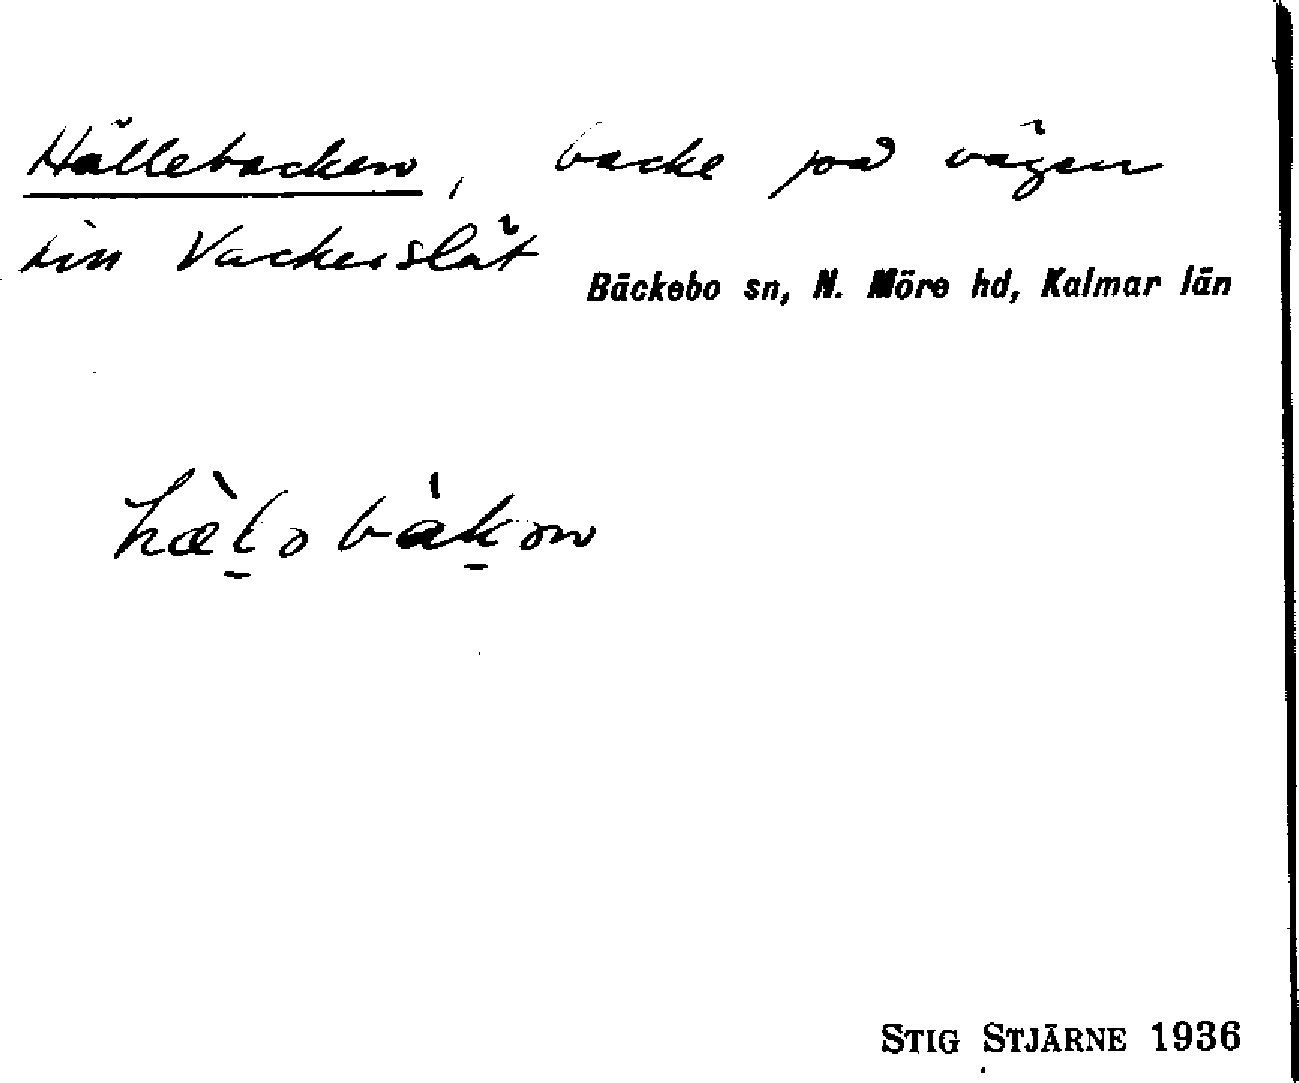 Hällebacken, backe på vägen
till Vackerslät
Bäckebo sn, N. Möre hd, Kalmar län
STIG STJÄRNE 1936